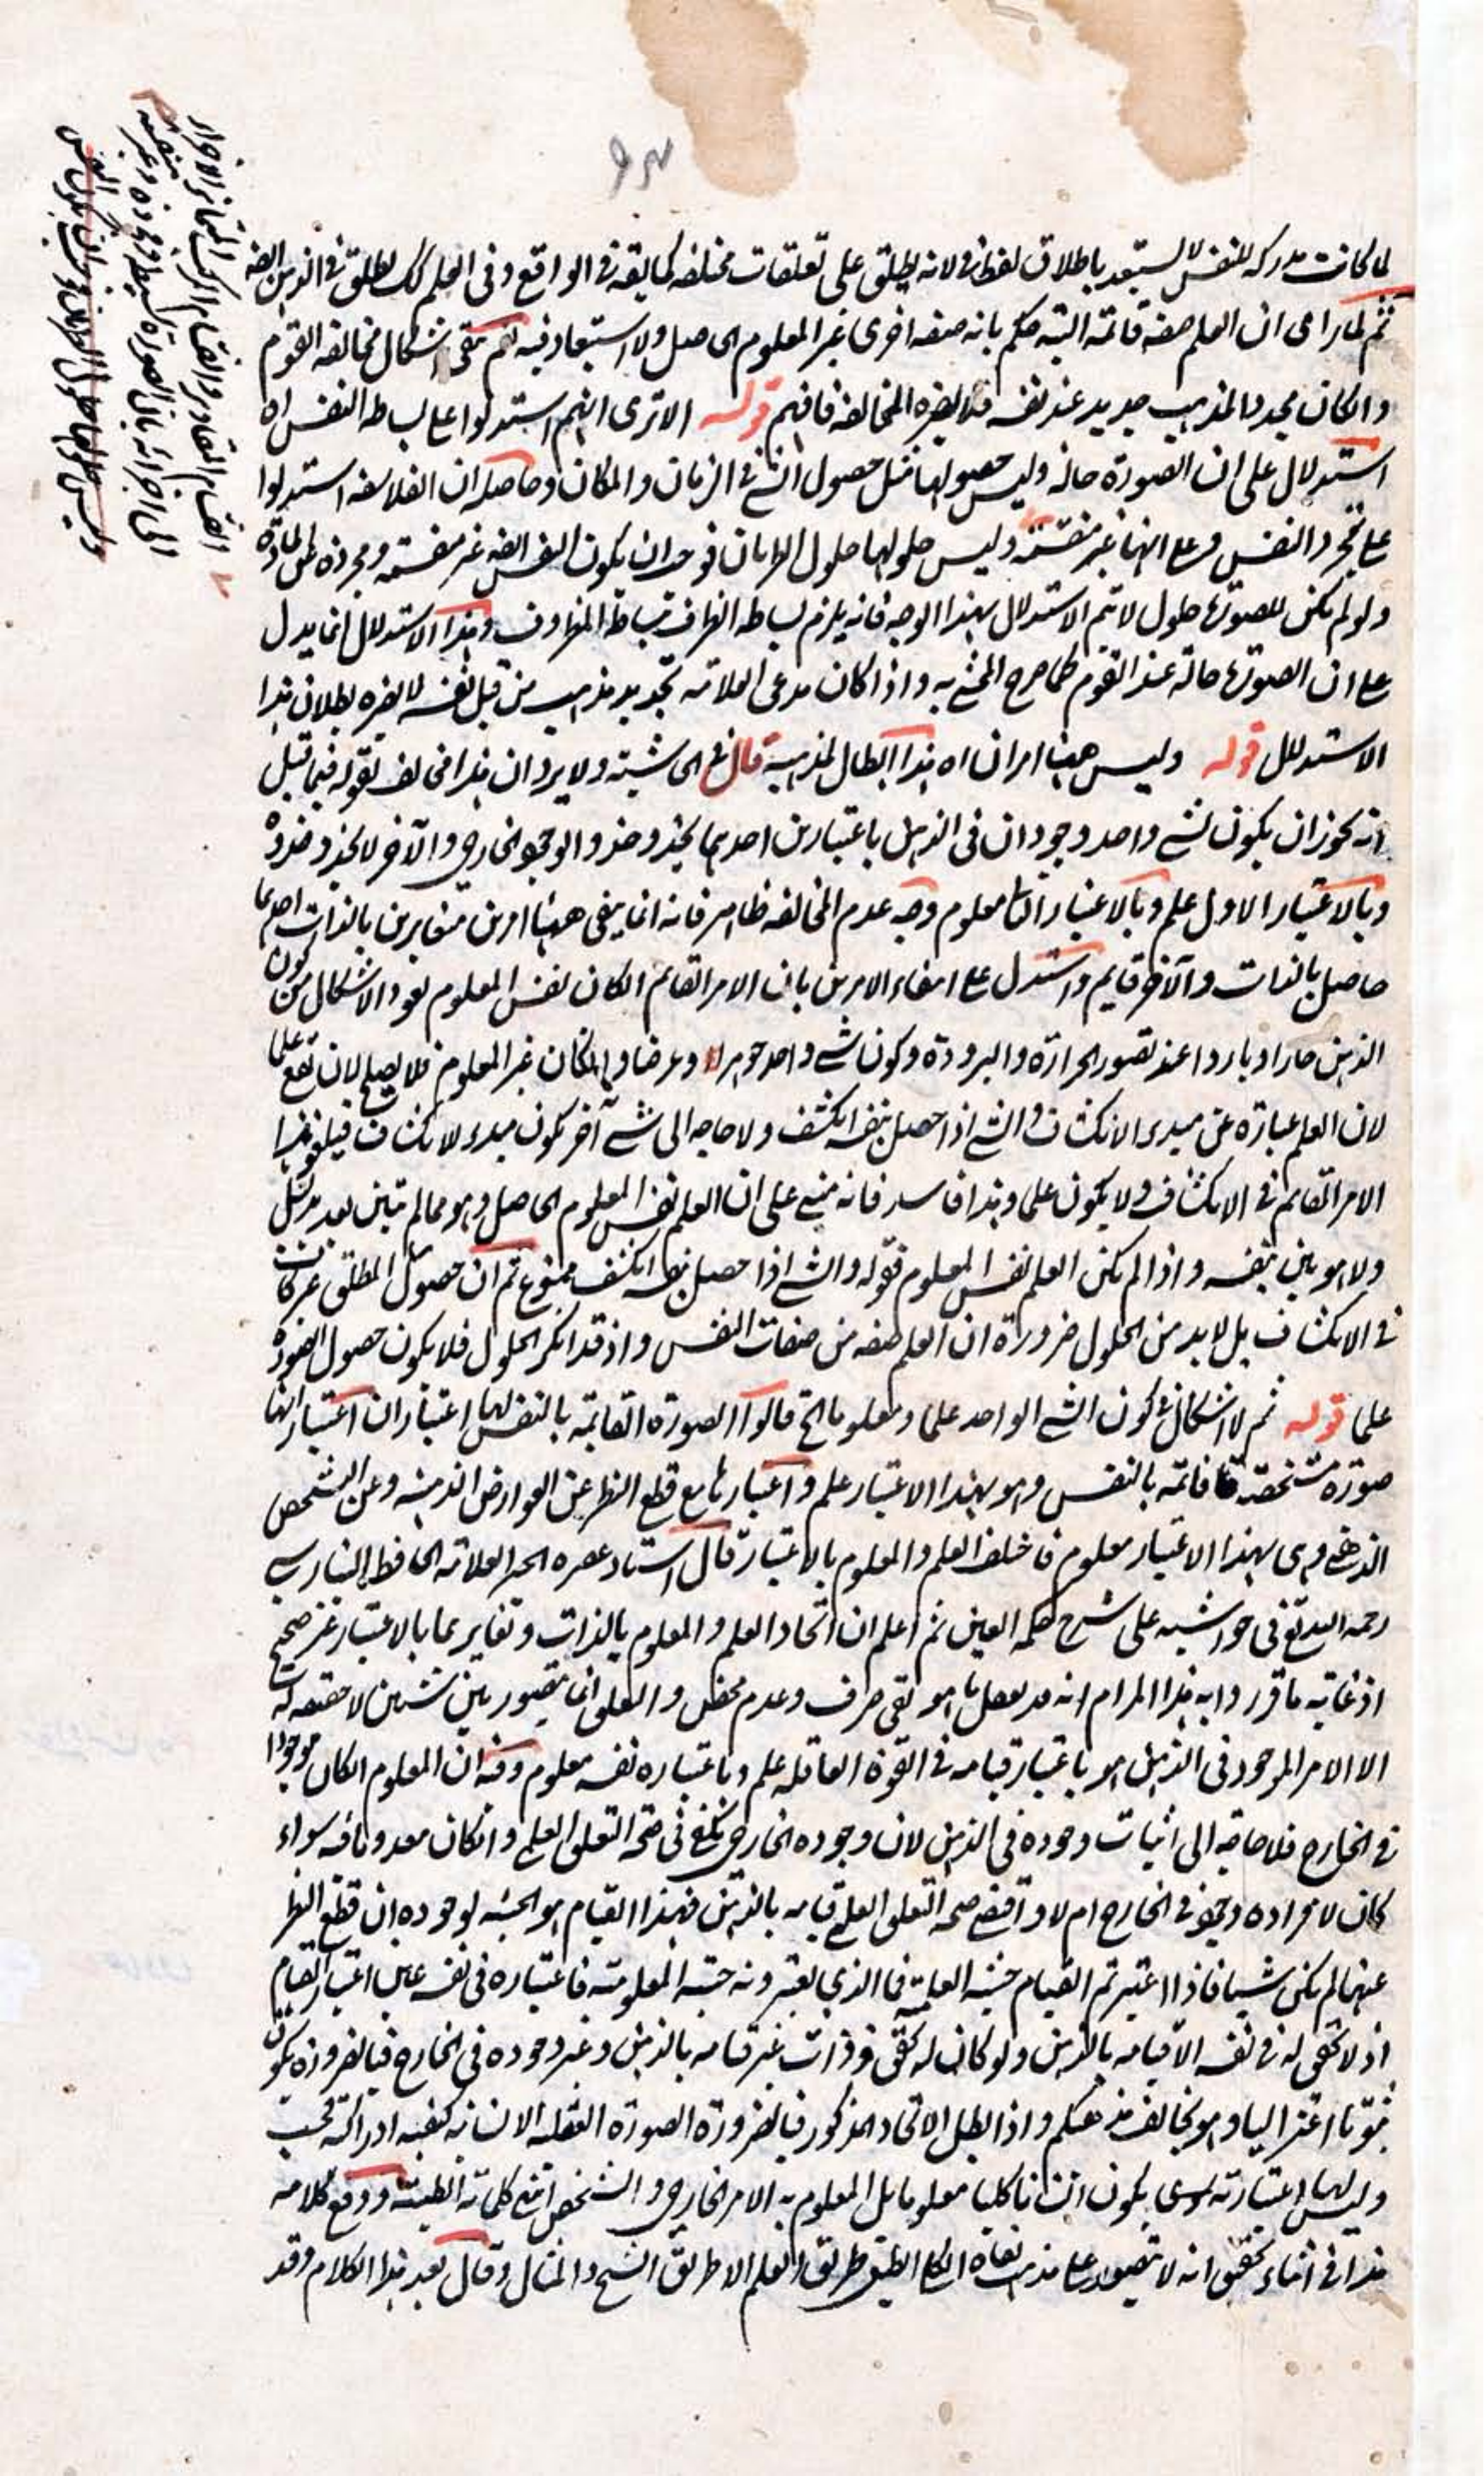 لما كانت مدركه للنفس لا يستبعد باطلاق لفظ في لانه يطلق على تعلقات مختلفه كما يقه في الواقع وفي العلم كك يطلق في الذهن ايضه
ثم لما راى ان العلم صفه قائمه البته حكم بانه صفه اخرى غير المعلوم الحاصل ولا استبعاد فيه نعم بقى اشكال مخالفه القوم
و الكان مجددا لمذهب جديد عند نفسه فلا يضره المخالفه فافهم قوله الا ترى انهم استدلوا على بساطه النفس اه
استدلال على ان الصورة حالة وليس حصولها مثل حصول الشئ في الزمان والمكان وحاصله ان الفلاسفه استدلوا
على تجرد النفس وعلى انها غير منقسمة وليس حلولها حلول الطريان فوجب ان يكون النفس ايضه غير منقسمه ومجردة عن المادة
ولو لم يكن للصورة حلول لا يتم الاستدلال بهذا الوجه فانه يلزم بساطه الظرف بساطة المظروف وهذا الاستدلال انما يدل
على ان الصورة حالة عند القوم كما صرح المحشى به واذا كان مدعى العلامه تجديد مذهب من قبل نفسه لا يضره بطلان هذا
الاستدلال قوله وليس ههنا امران اه هذا ابطال لمذهبه قال في الحاشيته ولا يرد ان هذا مخالف لقوله فيما قبل
انه يجوز ان يكون لشئ واحد وجودان في الذهن باعتبارين احدهما يحذو حذو الوجود الخارجي والآخر لا يحذو حذوه
وبالاعتبار الاول علم وبالاعتبار الثانى معلوم وجه عدم المخالفه ظاهر فانه انما ينفى ههنا امرين متغايرين بالذات احدهما
حاصل بالذات والآخر قايم واستدل على انتفاء الامرين بان الامر القائم الكان نفس المعلوم يعود الاشكال من كون
الذهن حارا وباردا عند تصور الحرارة والبرودة وكون شئ واحد جوهرا وعرضا وان كان غير المعلوم فلا يصلح لان يقع علما
لان العلم عبارة عن مبدء الانكشاف والشئ اذا حصل بنفسه انكشف ولا حاجه الى شئ آخر يكون مبدء لانكشاف فيلغو هذا
الامر القائم في الانكشاف ولا يكون علما وهذا فاسد فانه مبنى على ان العلم نفس المعلوم الحاصل وهو مما لم تبين بعد بدليل
ولا هو بين بنفسه واذا لم يكن العلم نفس المعلوم فقوله والشئ اذا حصل بنفسه انكشف ممنوع ثم ان حصول المطلق غير كاف
في الانكشاف بل لا بد من الحلول ضرورة ان العلم صفه من صفات النفس واذ قد انكر الحلول فلا يكون حصول الصورة
علما قوله ثم لا اشكال في كون الشئ الواحد علما ومعلوما الخ قالوا الصورة القائمه بالنفس لها اعتباران اعتبار انها
صورة متشخصة قائمه بالنفس وهو بهذا الاعتبار علم واعتبارها مع قطع النظر عن العوارض الذهنيه وعن التشخص
الذهنى وهى بهذا الاعتبار معلوم فاختلف العلم والمعلوم بالاعتبار قال استاد عصره الحبر العلامه الحافظ البنارسى
رحمه الله تع في حواشيه على شرح حكمه العين ثم اعلم ان اتحاد العلم والمعلوم بالذات وتغايرهما بالاعتبار غير صحيح
اذ غايه ما قرروا به هذا المرام انه قد يعقل ما هو نفى صرف وعدم محض والتعلق انما يتصور بين شيئين لا حقيقه له
الا الامر الموجود في الذهن هو باعتبار قيامه في القوة العاقله علم وباعتباره نفسه معلوم وفيه ان المعلوم الكان موجودا
في الخارج فلا حاجه الى اثبات وجوده في الذهن لان وجوده الخارجى يكفى في صحة التعلق العلمى وان كان معدوما فيه سواء
كان لافراده وجود في الخارج ام لا واقتضى صحه التعلق العلمى قيامه بالذهن فهذا القيام هو الحيثيه لوجوده ان قطع النظر
عنها لم يكن شيئا فاذا اعتبرتم القيام حيثيه العلميه فما الذي يعتبرونه حيثيه المعلوميه فاعتباره في نفسه عين اعتبار القيام
اذ لا تحقق له في نفسه الا قيامه بالذهن ولو كان له تحقق وذات غير قيامه بالذهن وغير وجوده في الخارج فبالضرورة يكون
ثبوتا اعتزاليا وهو يخالف مذهبكم واذا بطل الاتحاد المذكور فبالضرورة الصورة العقليه الانسانيه كيفيه ادراكية فحسب
وليس لها اعتبار به يكون انسانا كليا معلوما بل المعلوم به الامر الخارجى والشخص كلامه
هذا في اثناء تحقيق انه لا يتصور على مذهب نفاه الكلى الطبيعى طريق العلم الا طريق الشبح والمثال وقال بعد هذا الكلام وقد
انقسام المقادير وانقسام المركب المتمايز الاجزاء
الى اجزائه بان الصورة بسيطه ومجردة وغير منقسمه